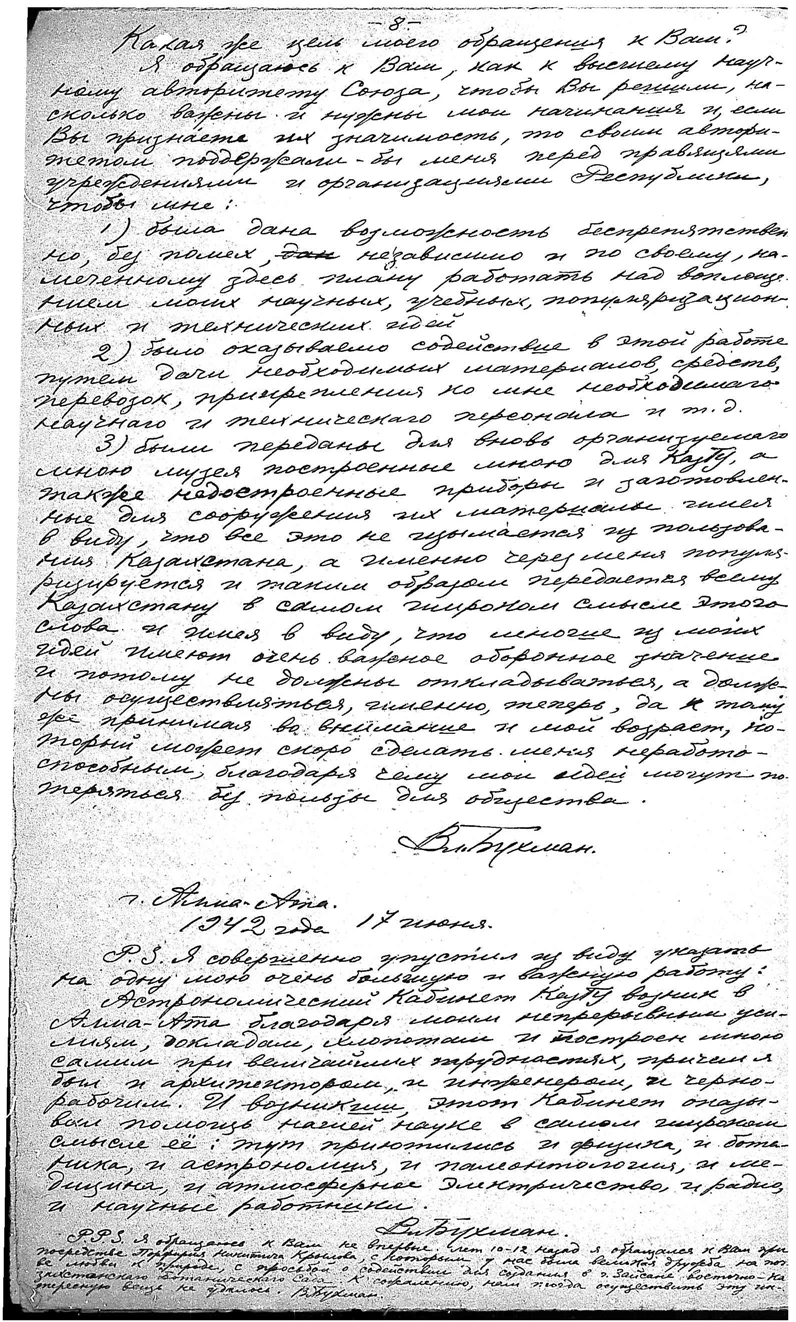 – 8 –
Какая же цель моего обращения к Вам?
Я обращаюсь к Вам, как к высшему науч-
ному авторитету Союза, чтобы Вы решили, на-
сколько важны и нужны мои начинания и, если
Вы признаете их значимость, то своим автори-
тетом поддержали-бы меня перед правящими
учреждениями и организациями Республики,
чтобы мне:
1) была дана возможность беспрепятствен
но, без помех, дан независимо и по своему, на-
меченному здесь плану работать над воплоще-
нием моих научных, учебных, популяризацион-
ных и технических идей
2) было оказываемо содействие в этой работе
путем дачи необходимых материалов, средств,
перевозок, прикрепления ко мне необходимаго
научнаго и техническаго персонала и т.д.
3) были переданы для вновь организуемаго
мною музея построенные мною для КазГУ, а
также недостроенные приборы и заготовлен-
ные для сооружения их материалы имея
в виду, что все это не изымается из пользова-
ния Казахстана, а именно через меня популя-
ризируется и таким образом передается всему
Казахстану в самом широком смысле этого
слова и имея в виду, что многие из моих
идей имеют очень важное оборонное значение
и потому не должны откладываться, а долж-
ны осуществляться, именно, теперь, да к тому
же принимая во внимание и мой возраст, ко-
торый может скоро сделать меня неработо-
способным, благодаря чему мои идей могут по-
теряться без пользы для общества.
Вл. Бухман.
г. Алма-Ата.
1942 года 17 июня.
P.S. Я совершенно упустил из виду указать
на одну мою очень большую и важную работу:
Астрономический Кабинет КазГУ возник в
Алма-Ата благодаря моим непрерывным уси-
лиям, докладам, хлопотам и построен мною
самим при величайших трудностях, причем я
был и архитектором, и инженером, и черно-
рабочим. И возникши, этот Кабинет оказы-
вал помощь нашей науке в самом широком
смысле её: тут приютились и физика, и бота-
ника, и астрономия, и палеонтология, и ме-
дицина, и атмосферное электричество, и радио,
и научные работники.
Вл. Бухман.
P.P.S. Я обращаюсь к Вам не впервые, лет 10-12 назад я обращался к Вам при
посредстве Порфирия Никитича Крылова, с которым у нас была великая дружба на поч-
ве любви к природе, с просьбой о содействии для создания в г. Зайсане восточно-ка-
захстанского Ботанического Сада. К сожалению, нам тогда осуществить эту ин-
тересную вещь не удалось. Вл. Бухман.